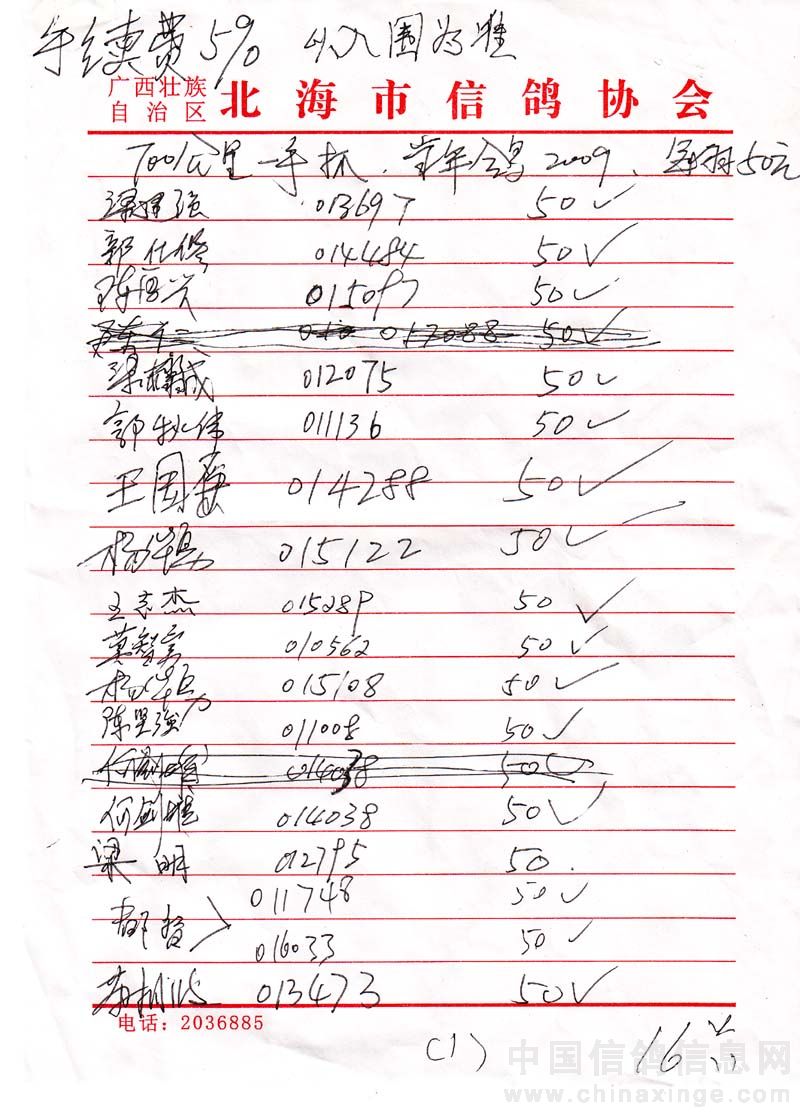 手续费5% 以入围为准
广西壮族
自治区 北海市信鸽协会
700公里一手抓. 当年鸽2009、每羽50元
梁建强 013697 50 ✓
郭仕 014484 50 ✓
陈 兴 015097 50 ✓
017088 50 ✓
梁 成 012075 50 ✓
郭 伟 011136 50 ✓
王国 014288 50 ✓
杨 015122 50 ✓
王志杰 015289 50 ✓
莫智 010562 50 ✓
杨 015108 50 ✓
陈坚强 011008 50 ✓
50 ✓
何剑雄 014038 50 ✓
梁明 012795 50.
011748 50 ✓
016033 50 ✓
013473 50 ✓
电话：2036885
(1) 16
中国信鸽信息网
www.chinaxinge.com